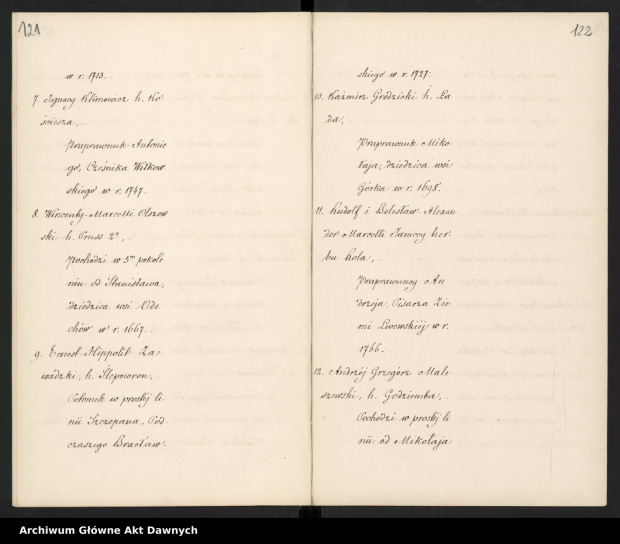 121
w r. 1713.
7. Ignacy Klimowicz h. Ko-
ściesza,
Praprawnuk Antonie-
go, Cześnika Wiłkow-
skiego w r. 1747.
8. Wincenty-Marcelli Olszow-
ski h. Pruss 2º,
Pochodzi w 5m pokole-
niu od Stanisława,
dziedzica wsi Ode-
chów w r. 1667.
9. Ernest-Hippolit Za-
wadzki, h. Ślepowron,
Potomek w prostéj li-
nii Szczepana, Pod-
czaszego Bracław-
122
skiego w r. 1727.
10. Kaźmirz Grodzicki h. Ła-
da,
Praprawnuk Miko-
łaja, dziedzica wsi
Górka w r. 1698.
11. Rudolf i Bolesław Alexan-
der Marcelli Janiccy her-
bu Rola,
Praprawnucy An-
drzeja, Pisarza Zie-
mi Lwowskiéj w r.
1766.
12. Andrzéj Grzegórz Male-
szewski, h. Godziemba,
Pochodzi w prostéj li-
nii od Mikołaja
Archiwum Główne Akt Dawnych